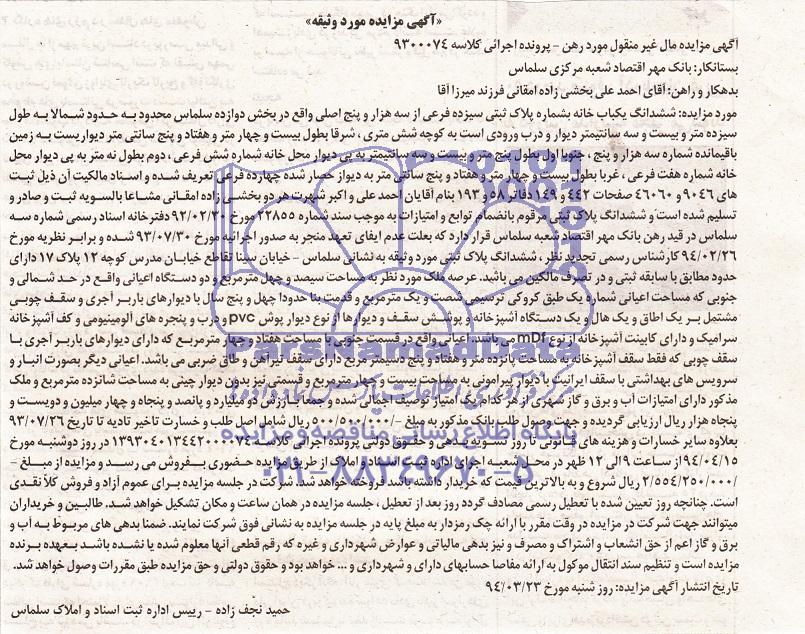 «آگهی مزایده مورد وثیقه»
آگهی مزایده مال غیر منقول مورد رهن - پرونده اجرائی کلاسه ۹۳۰۰۰۷۴
بستانکار: بانک مهر اقتصاد شعبه مرکزی سلماس
بدهکار و راهن: آقای احمد علی بخشی زاده امقانی فرزند میرزا آقا
مورد مزایده: ششدانگ یکباب خانه بشماره پلاک ثبتی سیزده فرعی از سه هزار و پنج اصلی واقع در بخش دوازده سلماس محدود به حدود شمالا به طول
سیزده متر و بیست و سه سانتیمتر دیوار و درب ورودی است به کوچه شش متری ، شرقا بطول بیست و چهار متر و هفتاد و پنج سانتی متر دیواریست به زمین
باقیمانده شماره سه هزار و پنج ، جنوبا اول بطول پنج متر و بیست و سه سانتیمتر به پی دیوار محل خانه شماره شش فرعی ، دوم بطول نه متر به پی دیوار محل
خانه شماره هفت فرعی ، غربا بطول بیست و چهار متر و هفتاد و پنج سانتی متر به دیوار حصار شده چهارده فرعی تعریف شده و اسناد مالکیت آن ذیل ثبت
های ۹۰۴۶ و ۴۶۰۶۰ صفحات ۴۴۲ و ۱۴۹ دفاتر ۵۸ و ۱۹۳ بنام آقایان احمد علی و اکبر شهرت هر دو بخشی زاده امقانی مشاعا بالسویه ثبت و صادر و
تسلیم شده است و ششدانگ پلاک ثبتی مرقوم بانضمام توابع و امتیازات به موجب سند شماره ۲۲۸۵۵ مورخ ۹۲/۰۲/۳۰ دفترخانه اسناد رسمی شماره سه
سلماس در قید رهن بانک مهر اقتصاد شعبه سلماس قرار دارد که بعلت عدم ایفای تعهد منجر به صدور اجرائیه مورخ ۹۳/۰۷/۳۰ شده و برابر نظریه مورخ
۹۴/۰۲/۲۶ کارشناس رسمی تجدید نظر ، ششدانگ پلاک ثبتی مورد وثیقه به نشانی سلماس - خیابان سینا تقاطع خیابان مدرس کوچه ۱۲ پلاک ۱۷ دارای
حدود مطابق با سابقه ثبتی و در تصرف مالکین می باشد. عرصه ملک مورد نظر به مساحت سیصد و چهل مترمربع و دو دستگاه اعیانی واقع در حد شمالی و
جنوبی که مساحت اعیانی شماره یک طبق کروکی ترسیمی شصت و یک مترمربع و قدمت بنا حدودا چهل و پنج سال با دیوارهای باربر آجری و سقف چوبی
مشتمل بر یک اطاق و یک هال و یک دستگاه آشپزخانه و پوشش سقف و دیوارها از نوع دیوار پوش pvc و درب و پنجره های آلومینیومی و کف آشپزخانه
سرامیک و دارای کابینت آشپزخانه از نوع mDf می باشد. اعیانی واقع در قسمت جنوبی با مساحت هفتاد و چهار مترمربع که دارای دیوارهای باربر آجری با
سقف چوبی که فقط سقف آشپزخانه به مساحت پانزده متر و هفتاد و پنج دسیمتر مربع دارای سقف تیرآهن و طاق ضربی می باشد. اعیانی دیگر بصورت انبار و
سرویس های بهداشتی با سقف ایرانیت با دیوار پیرامونی به مساحت بیست و چهار مترمربع و قسمتی نیز بدون دیوار چینی به مساحت شانزده مترمربع و ملک
مذکور دارای امتیازات آب و برق و گاز شهری از هر کدام یک امتیاز توصیف اجمالی شده و جمعا به ارزش دو میلیارد و پانصد و پنجاه و چهار میلیون و دویست و
پنجاه هزار ریال ارزیابی گردیده و جهت وصول طلب بانک مذکور به مبلغ -/۵۰۰/۵۰۰/۰۰۰ ریال شامل اصل طلب و خسارت تاخیر تادیه تا تاریخ ۹۳/۰۷/۲۶
بعلاوه سایر خسارات و هزینه های قانونی تا روز تسویه بدهی و حقوق دولتی پرونده اجرائی کلاسه ۱۳۹۳۰۴۰۱۳۴۴۲۰۰۰۰۷۴ در روز دوشنبه مورخ
۹۴/۰۴/۱۵ از ساعت ۹ الی ۱۲ ظهر در محل شعبه اجرای اداره ثبت اسناد و املاک از طریق مزایده حضوری بفروش می رسد و مزایده از مبلغ -
/۲/۵۵۴/۲۵۰/۰۰۰ ریال شروع و به بالاترین قیمت که خریدار داشته باشد فروخته خواهد شد. شرکت در جلسه مزایده برای عموم آزاد و فروش کلا نقدی
است. چنانچه روز تعیین شده با تعطیل رسمی مصادف گردد روز بعد از تعطیل ، جلسه مزایده در همان ساعت و مکان تشکیل خواهد شد. طالبین و خریداران
میتوانند جهت شرکت در مزایده در وقت مقرر با ارائه چک رمزدار به مبلغ پایه در جلسه مزایده به نشانی فوق شرکت نمایند. ضمنا بدهی های مربوط به آب و
برق و گاز اعم از حق انشعاب و اشتراک و مصرف و نیز بدهی مالیاتی و عوارض شهرداری و غیره که رقم قطعی آنها معلوم شده یا نشده باشد بعهده برنده
مزایده است و تنظیم سند انتقال موکول به ارائه مفاصا حسابهای دارای و شهرداری و ... خواهد بود و حقوق دولتی و حق مزایده طبق مقررات وصول خواهد شد.
تاریخ انتشار آگهی مزایده: روز شنبه مورخ ۹۴/۰۳/۲۳
حمید نجف زاده - رییس اداره ثبت اسناد و املاک سلماس
ParsNamadData
پایگاه اطلاع رسانی مناقصه و مزایده
۰۲۱-۸۸۳۴۹۶۷۰-۵